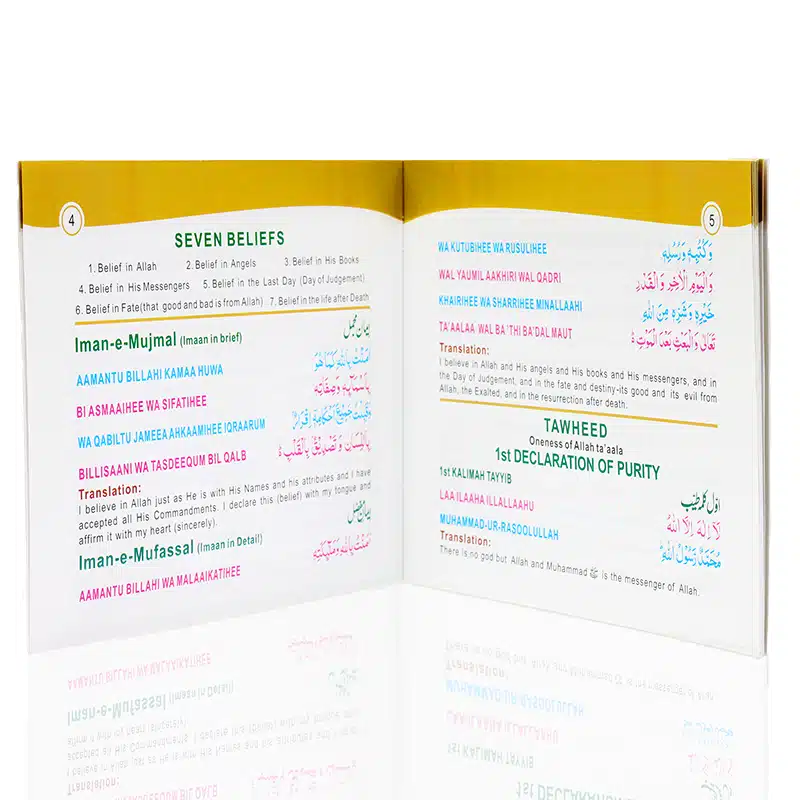 4
SEVEN BELIEFS
1. Belief in Allah 2. Belief in Angels 3. Belief in His Books
4. Belief in His Messengers 5. Belief in the Last Day (Day of Judgement)
6. Belief in Fate(that good and bad is from Allah) 7. Belief in the life after Death
Iman-e-Mujmal (Imaan in brief) ایمان مجمل
AAMANTU BILLAHI KAMAA HUWA اٰمَنْتُ بِاللّٰهِ كَمَا هُوَ
BI ASMAAIHEE WA SIFATIHEE بِاَسْمَآئِهٖ وَصِفَاتِهٖ
WA QABILTU JAMEEA AHKAAMIHEE IQRAARUM وَقَبِلْتُ جَمِيْعَ اَحْكَامِهٖ اِقْرَارٌ
BILLISAANI WA TASDEEQUM BIL QALB بِاللِّسَانِ وَتَصْدِيْقٌ بِالْقَلْبِ ۞
Translation:
I believe in Allah just as He is with His Names and his attributes and I have
accepted all His Commandments. I declare this (belief) with my tongue and
affirm it with my heart (sincerely).
Iman-e-Mufassal (Imaan in Detail) ایمان مفصل
AAMANTU BILLAHI WA MALAAIKATIHEE اٰمَنْتُ بِاللّٰهِ وَمَلٰٓئِكَتِهٖ
5
WA KUTUBIHEE WA RUSULIHEE وَكُتُبِهٖ وَرُسُلِهٖ
WAL YAUMIL AAKHIRI WAL QADRI وَالْيَوْمِ الْاٰخِرِ وَالْقَدْرِ
KHAIRIHEE WA SHARRIHEE MINALLAAHI خَيْرِهٖ وَشَرِّهٖ مِنَ اللّٰهِ
TA'AALAA WAL BA'THI BA'DAL MAUT تَعَالٰى وَالْبَعْثِ بَعْدَ الْمَوْتِ ۞
Translation:
I believe in Allah and His angels and His books and His messengers, and in
the Day of Judgement, and in the fate and destiny-its good and its evil from
Allah, the Exalted, and in the resurrection after death.
TAWHEED
Oneness of Allah ta'aala
1st DECLARATION OF PURITY
1st KALIMAH TAYYIB اول کلمہ طیب
LAA ILAAHA ILLALLAAHU لَآ اِلٰهَ اِلَّا اللّٰهُ
MUHAMMAD-UR-RASOOLULLAH مُحَمَّدٌ رَّسُوْلُ اللّٰهِ
Translation:
There is no god but Allah and Muhammad ﷺ is the messenger of Allah.